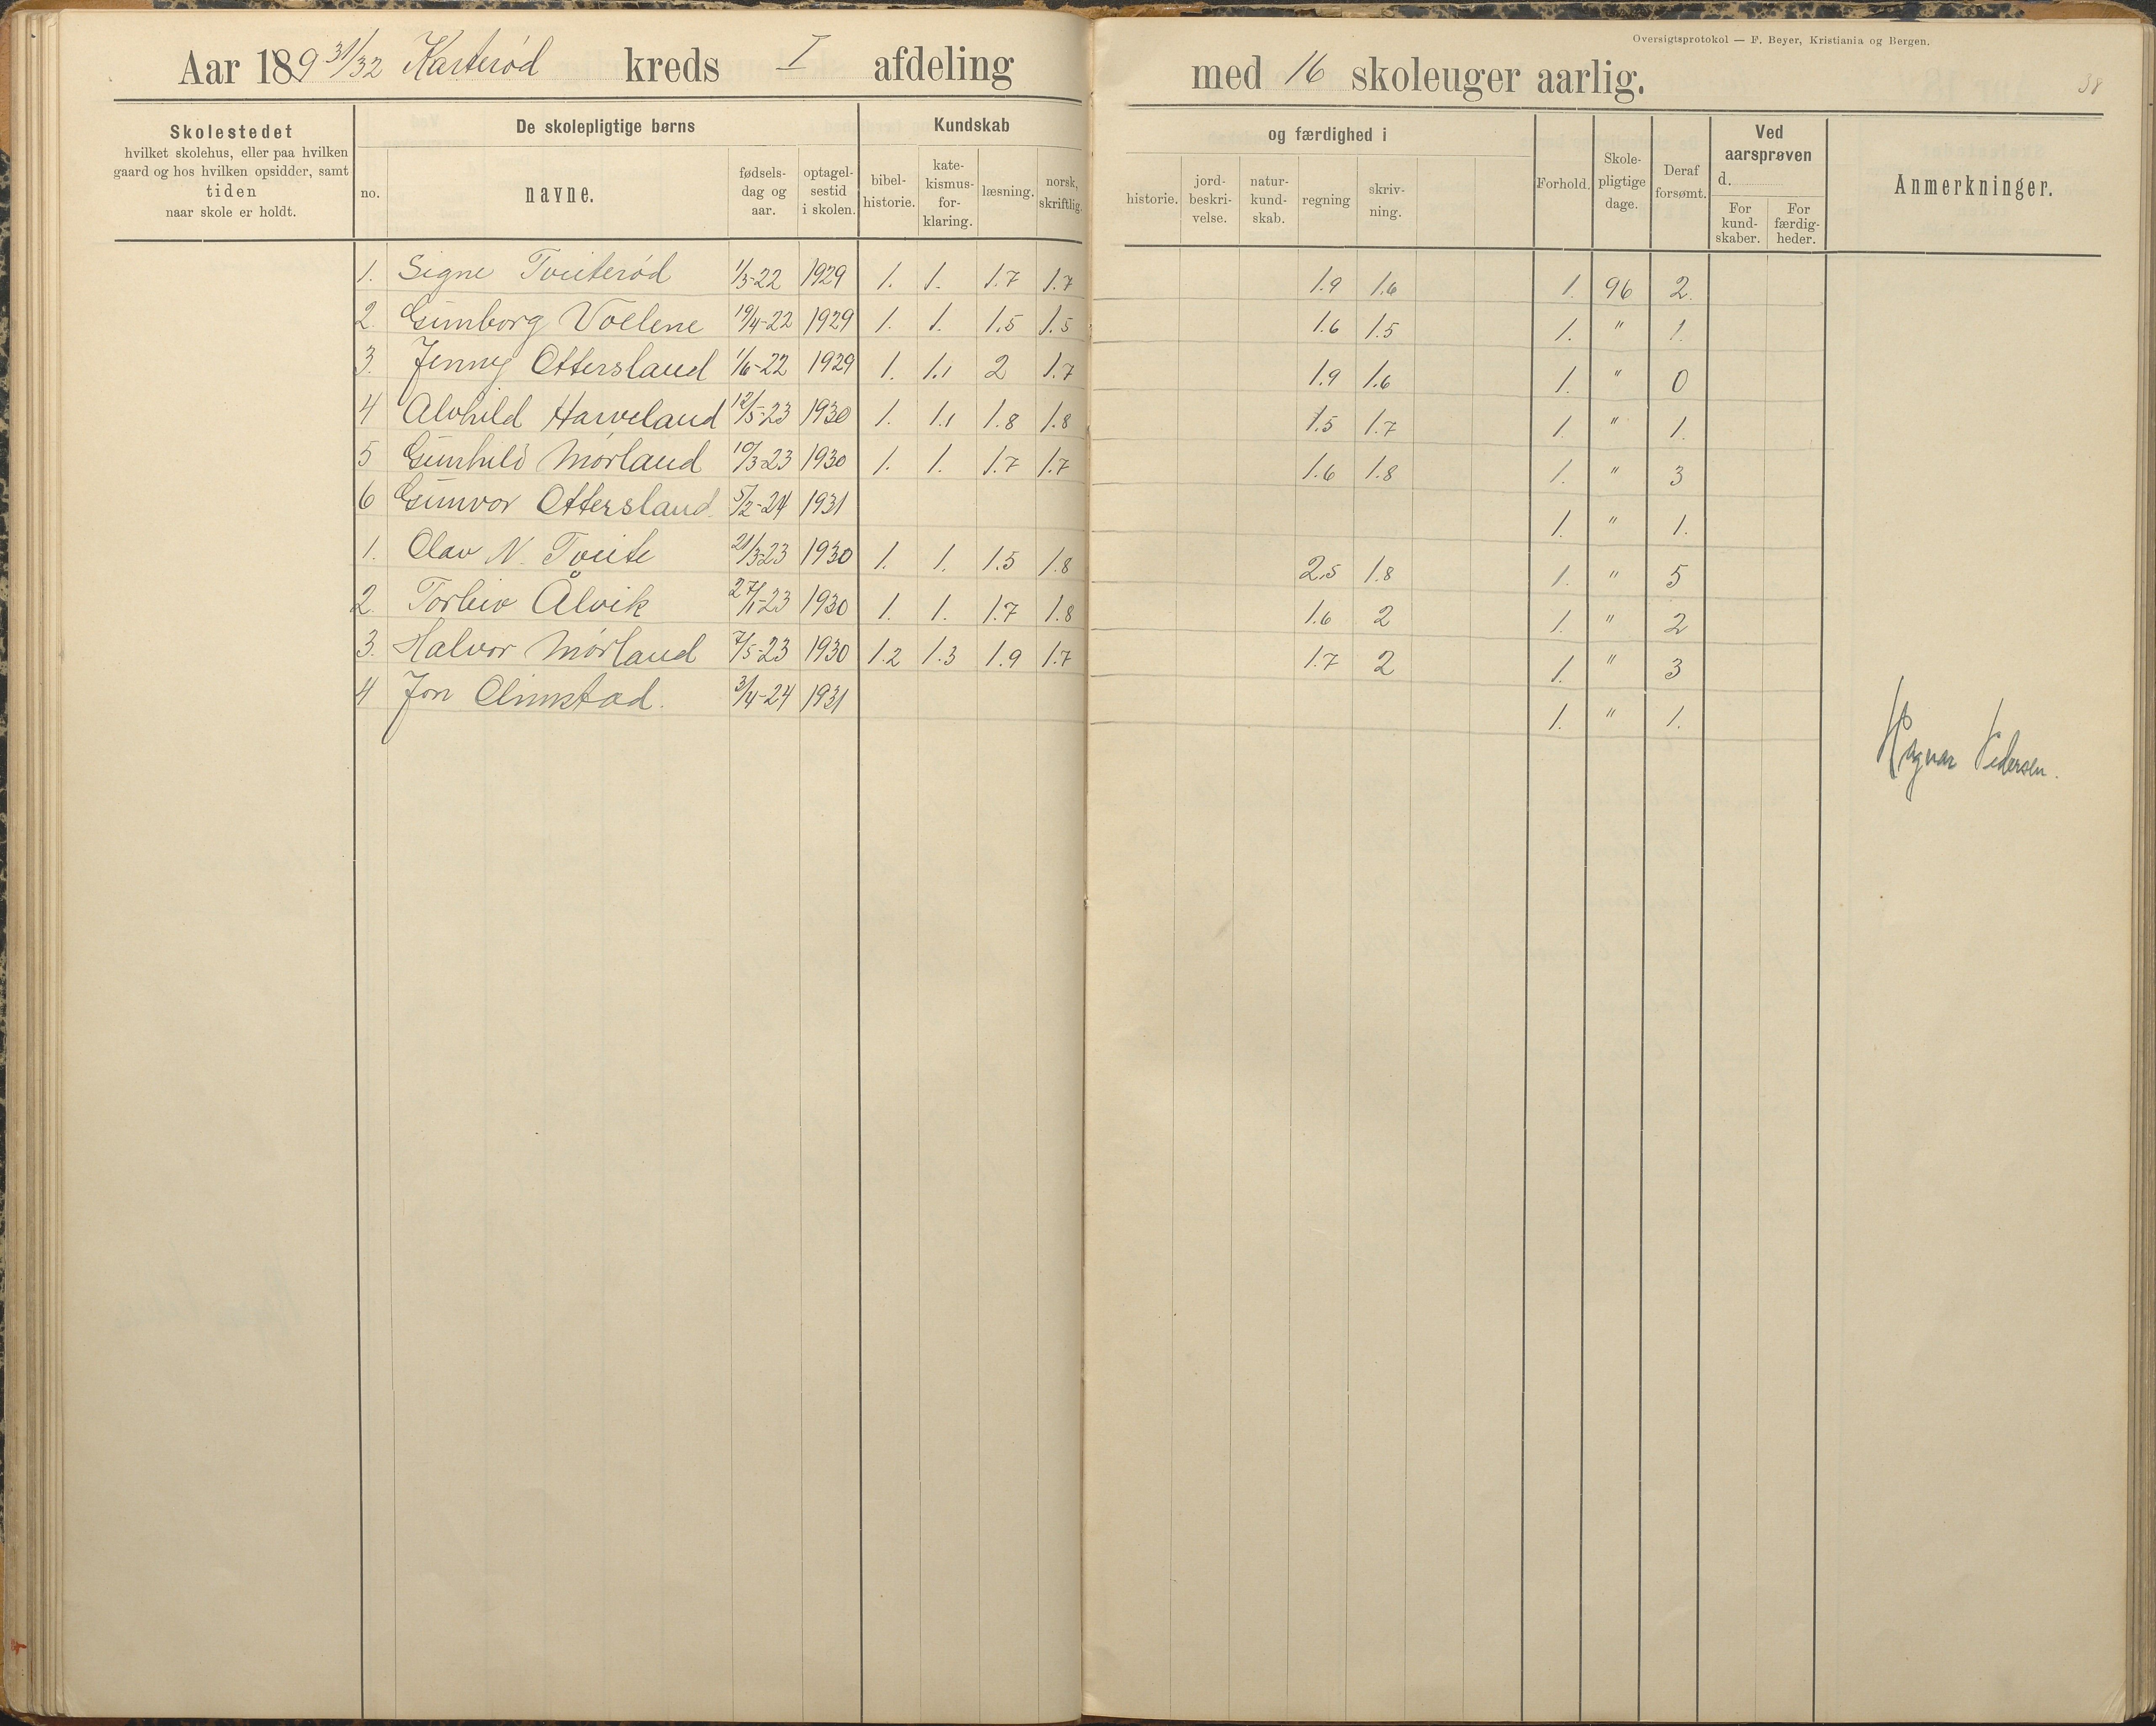 Oversigtsprotokol — F. Beyer, Kristiania og Bergen.
Aar 189 31/32 Karterød kreds I afdeling med 16 skoleuger aarlig.
38
Skolestedet
hvilket skolehus, eller paa hvilken
gaard og hos hvilken opsidder, samt
tiden
naar skole er holdt.
De skolepligtige børns
no. navne. fødsels-dag og aar. optagel-sestid i skolen.
Kundskab og færdighed i
bibel-historie. kate-kismus-for-klaring. læsning. norsk, skriftlig. historie. jord-beskri-velse. natur-kund-skab. regning skriv-ning.
Forhold. Skole-pligtige dage. Deraf forsømt.
Ved aarsprøven d.
For kund-skaber. For færdig-heder.
Anmerkninger.
1. Signe Tveiterød 1/3-22 1929 1. 1. 1.7 1.7 1.9 1.6 1. 96 2.
2. Gunborg Voellene 19/4-22 1929 1. 1. 1.5 1.5 1.6 1.5 1. " 1.
3. Jenny Ottersland 1/6-22 1929 1. 1.1 2 1.7 1.9 1.6 1. " 0
4 Alvhild Harveland 12/5-23 1930 1. 1.1 1.8 1.8 1.5 1.7 1. " 1.
5 Gunhild Mørland 10/3-23 1930 1. 1. 1.7 1.7 1.6 1.8 1. " 3
6 Gunvor Ottersland. 5/2-24 1931 1. " 1.
1. Olav N. Tveite 21/3-23 1930 1. 1. 1.5 1.8 2.5 1.8 1. " 5
2. Torleiv Ålvik 27/1-23 1930 1. 1. 1.7 1.8 1.6 2 1. " 2
3. Halvor Mørland 7/5-23 1930 1.2 1.3 1.9 1.7 1.7 2 1. " 3
4 Jon Olimstad. 3/4-24 1931 1. " 1.
Ragnar Pedersen.